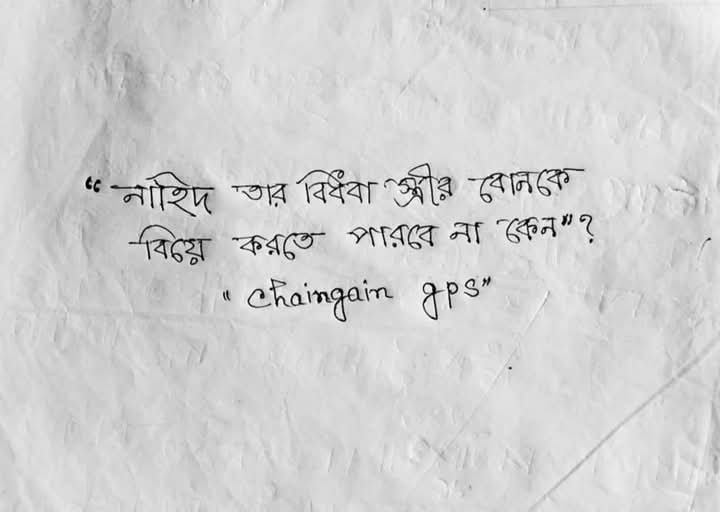 "নাহিদ তার বিধবা স্ত্রীর বোনকে
বিয়ে করতে পারবে না কেন"?
"chaingain gps"